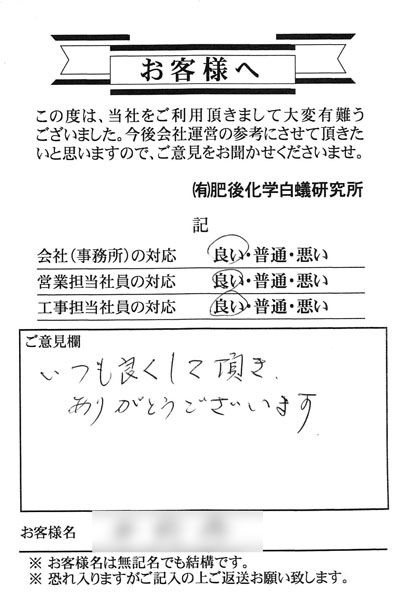 お客様へ
この度は、当社をご利用頂きまして大変有難う
ございました。今後会社運営の参考にさせて頂きた
いと思いますので、ご意見をお聞かせくださいませ。
㈲肥後化学白蟻研究所
記
会社（事務所）の対応 良い・普通・悪い
営業担当社員の対応 良い・普通・悪い
工事担当社員の対応 良い・普通・悪い
ご意見欄
いつも良くして頂き、
ありがとうございます
お客様名
※ お客様名は無記名でも結構です。
※ 恐れ入りますがご記入の上ご返送お願い致します。